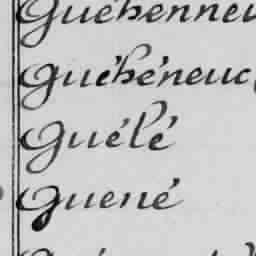 Guéhenneu
Guéhéneuc
Guélé
Guené